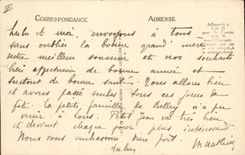 CORRESPONDANCE
ADRESSE
Lulu et moi, envoyons à tous
sans oublier la bonne grand'mère
notre meilleur souvenir et nos souhaits
bien affectueux de bonne année et
surtout de bonne santé. Nous allons bien
et avons passé seuls tous ces jours de
fête. La petite famille de Belley n'a pu
venir à nous. Petit Jean va très bien
et devient chaque jour plus intéressant
Nous vous embrassons bien fort. Mathieu
Lulu